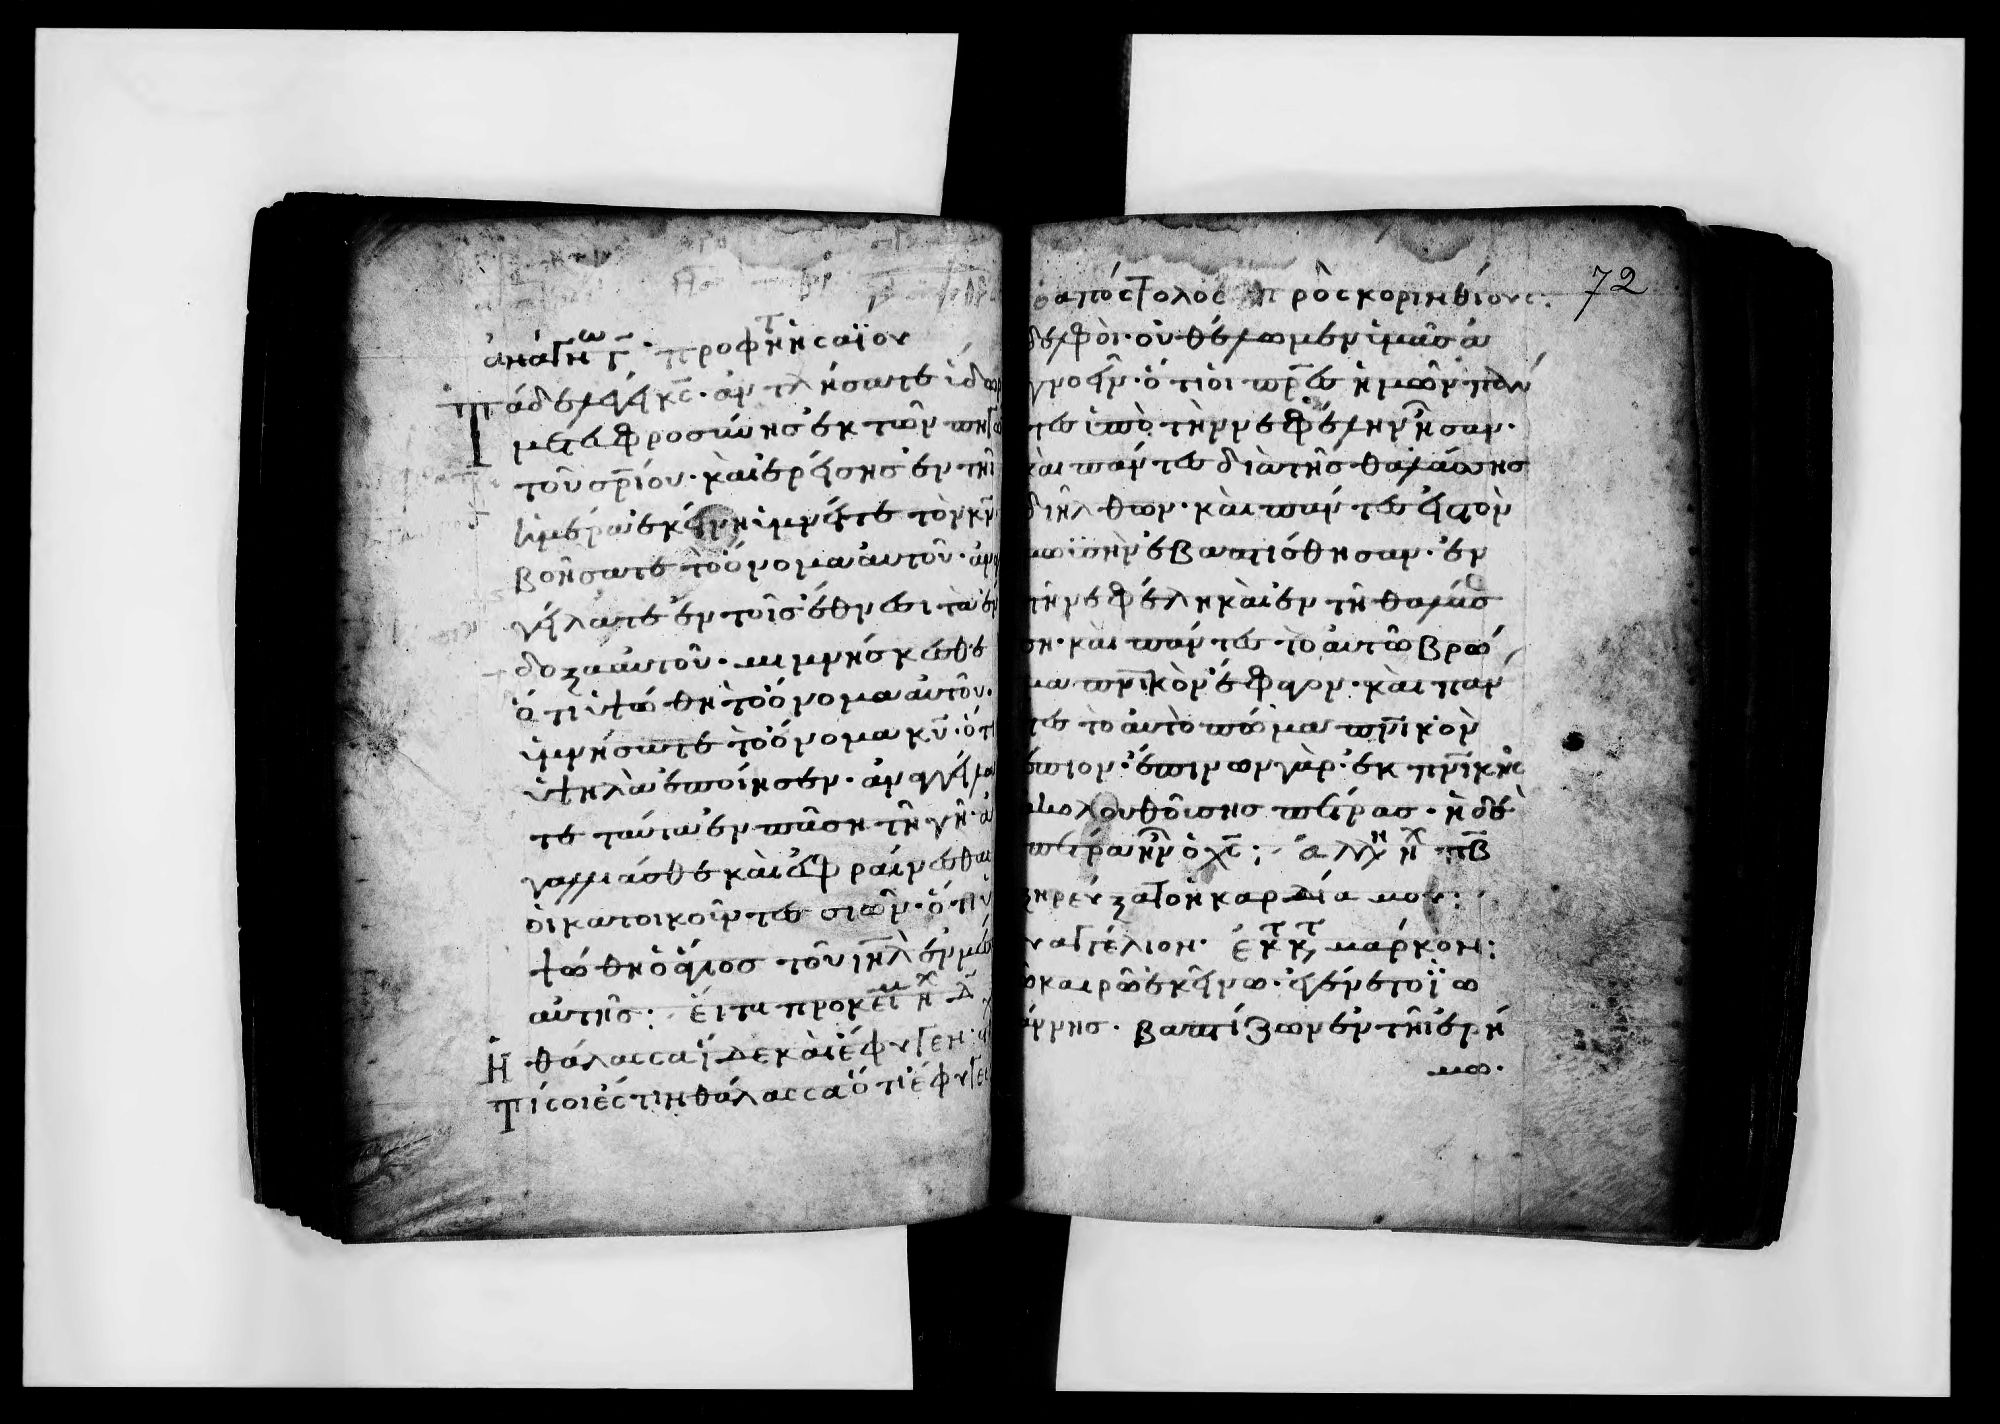 ἀνάγνω γ̅ · προφήτ ἠσαΐου
Τάδε λέγει κ̅ς̅ · ἀντλήσατε ὕδωρ
μετ εὐφροσύνης ἐκ τῶν πηγῶ
τοῦ σ̅ρ̅ίου · καὶ ἐρεῖς ἐν τῆι
ἡμέρα ἐκείνη ὑμνεῖτε τὸν κ̅ν̅ ·
βοήσατε τὸ ὄνομα αὐτοῦ · ἀναγ
γείλατε ἐν τοῖς ἔθνεσι τὰ ἔν
δοξα αὐτοῦ · μιμνήσκεσθε
ὅτι ὑψώθη τὸ ὄνομα αὐτοῦ ·
ὑμνήσατε τὸ ὄνομα κ̅υ̅ · ὅτι
ὑψηλὰ ἐποίησεν · ἀναγγείλα
τε ταύτα ἐν πᾶση τῆ γῆ · ἀ
γαλλιάσθε καὶ εὐφραίνεσθαι
οἱ κατοικοῦντες σιών · ὅτι ὑ
ψώθη ὁ ἅγιος τοῦ ι̅η̅λ̅ ἐν μέσω
αὐτῆς : εἶτα προκείμ ἦχ δ̅
Ἡ θάλασσα ἴδε καὶ ἔφυγεν ·
Τί σοι ἐστιν θάλασσα ὅτι ἔφυγες
72
ὁ ἀπόστολος πρὸς κορινθίους :
δελφοὶ · οὐ θέλωμεν ὑμᾶς ἀ
γνοεῖν · ὅτι οἱ π̅ρ̅ες ἡμῶν πάν
τες ὑπὸ τὴν νεφέλην ἦσαν ·
καὶ πάντες διὰ τῆς θαλάσσης
διῆλθων · καὶ πάντες εἰς τὸν
μωϊσὴν ἐβαπτίσθησαν · ἐν
τῆ νεφέλη καὶ ἐν τῆ θαλάσ
ση · καὶ πάντες τὸ αὐτὸ βρῶ
μα π̅ν̅ικὸν ἔφαγον · καὶ πάν
τες τὸ αὐτὸ πόμα π̅ν̅ικὸν
ἔπιον · ἔπινον γὰρ ἐκ π̅ν̅ικῆς
ἀκολουθούσης πέτρας · ἡ δὲ
πέτρα ἦν ὁ χ̅ς̅ : ἀλλη ἦχ π̅β̅
ξηρεύξατο ἡ καρδία μου :
υαγγέλιον · ἐκ τ κτ, μάρκον :
ῶ καιρῶ ἐκείνω · ἐγένετο ϊω
άννης · βαπτίζων ἐν τῆ ἐρή
μω ·